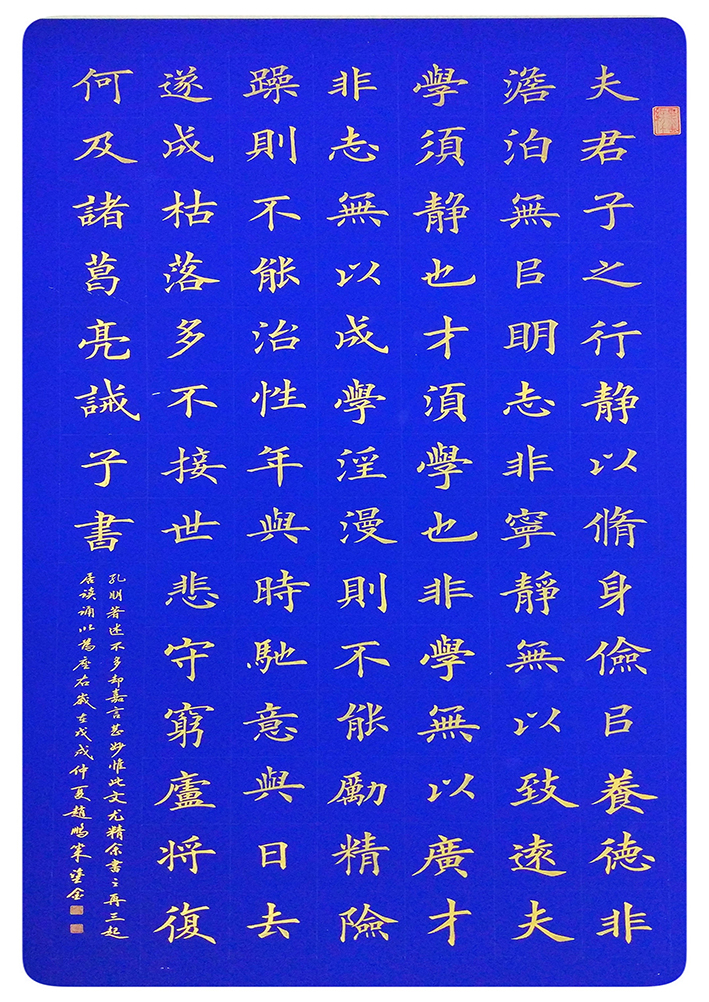 夫君子之行静以脩身儉㠯養徳非
澹泊無㠯明志非寧靜無以致遠夫
學須静也才須學也非學無以廣才
非志無以成學淫漫則不能勵精險
躁則不能治性年與時馳意與日去
遂成枯落多不接世悲守窮廬将復
何及諸葛亮誡子書
孔明著述不多却嘉言甚妙惟此文尤精余書之再三起
居读誦以為座右歲在戊戌仲夏趙鵬塗金